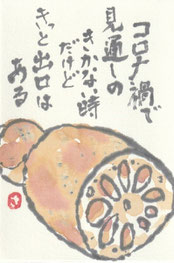 コロナ禍で
見通しの
きかない時
だけど
きっと出口は
ある